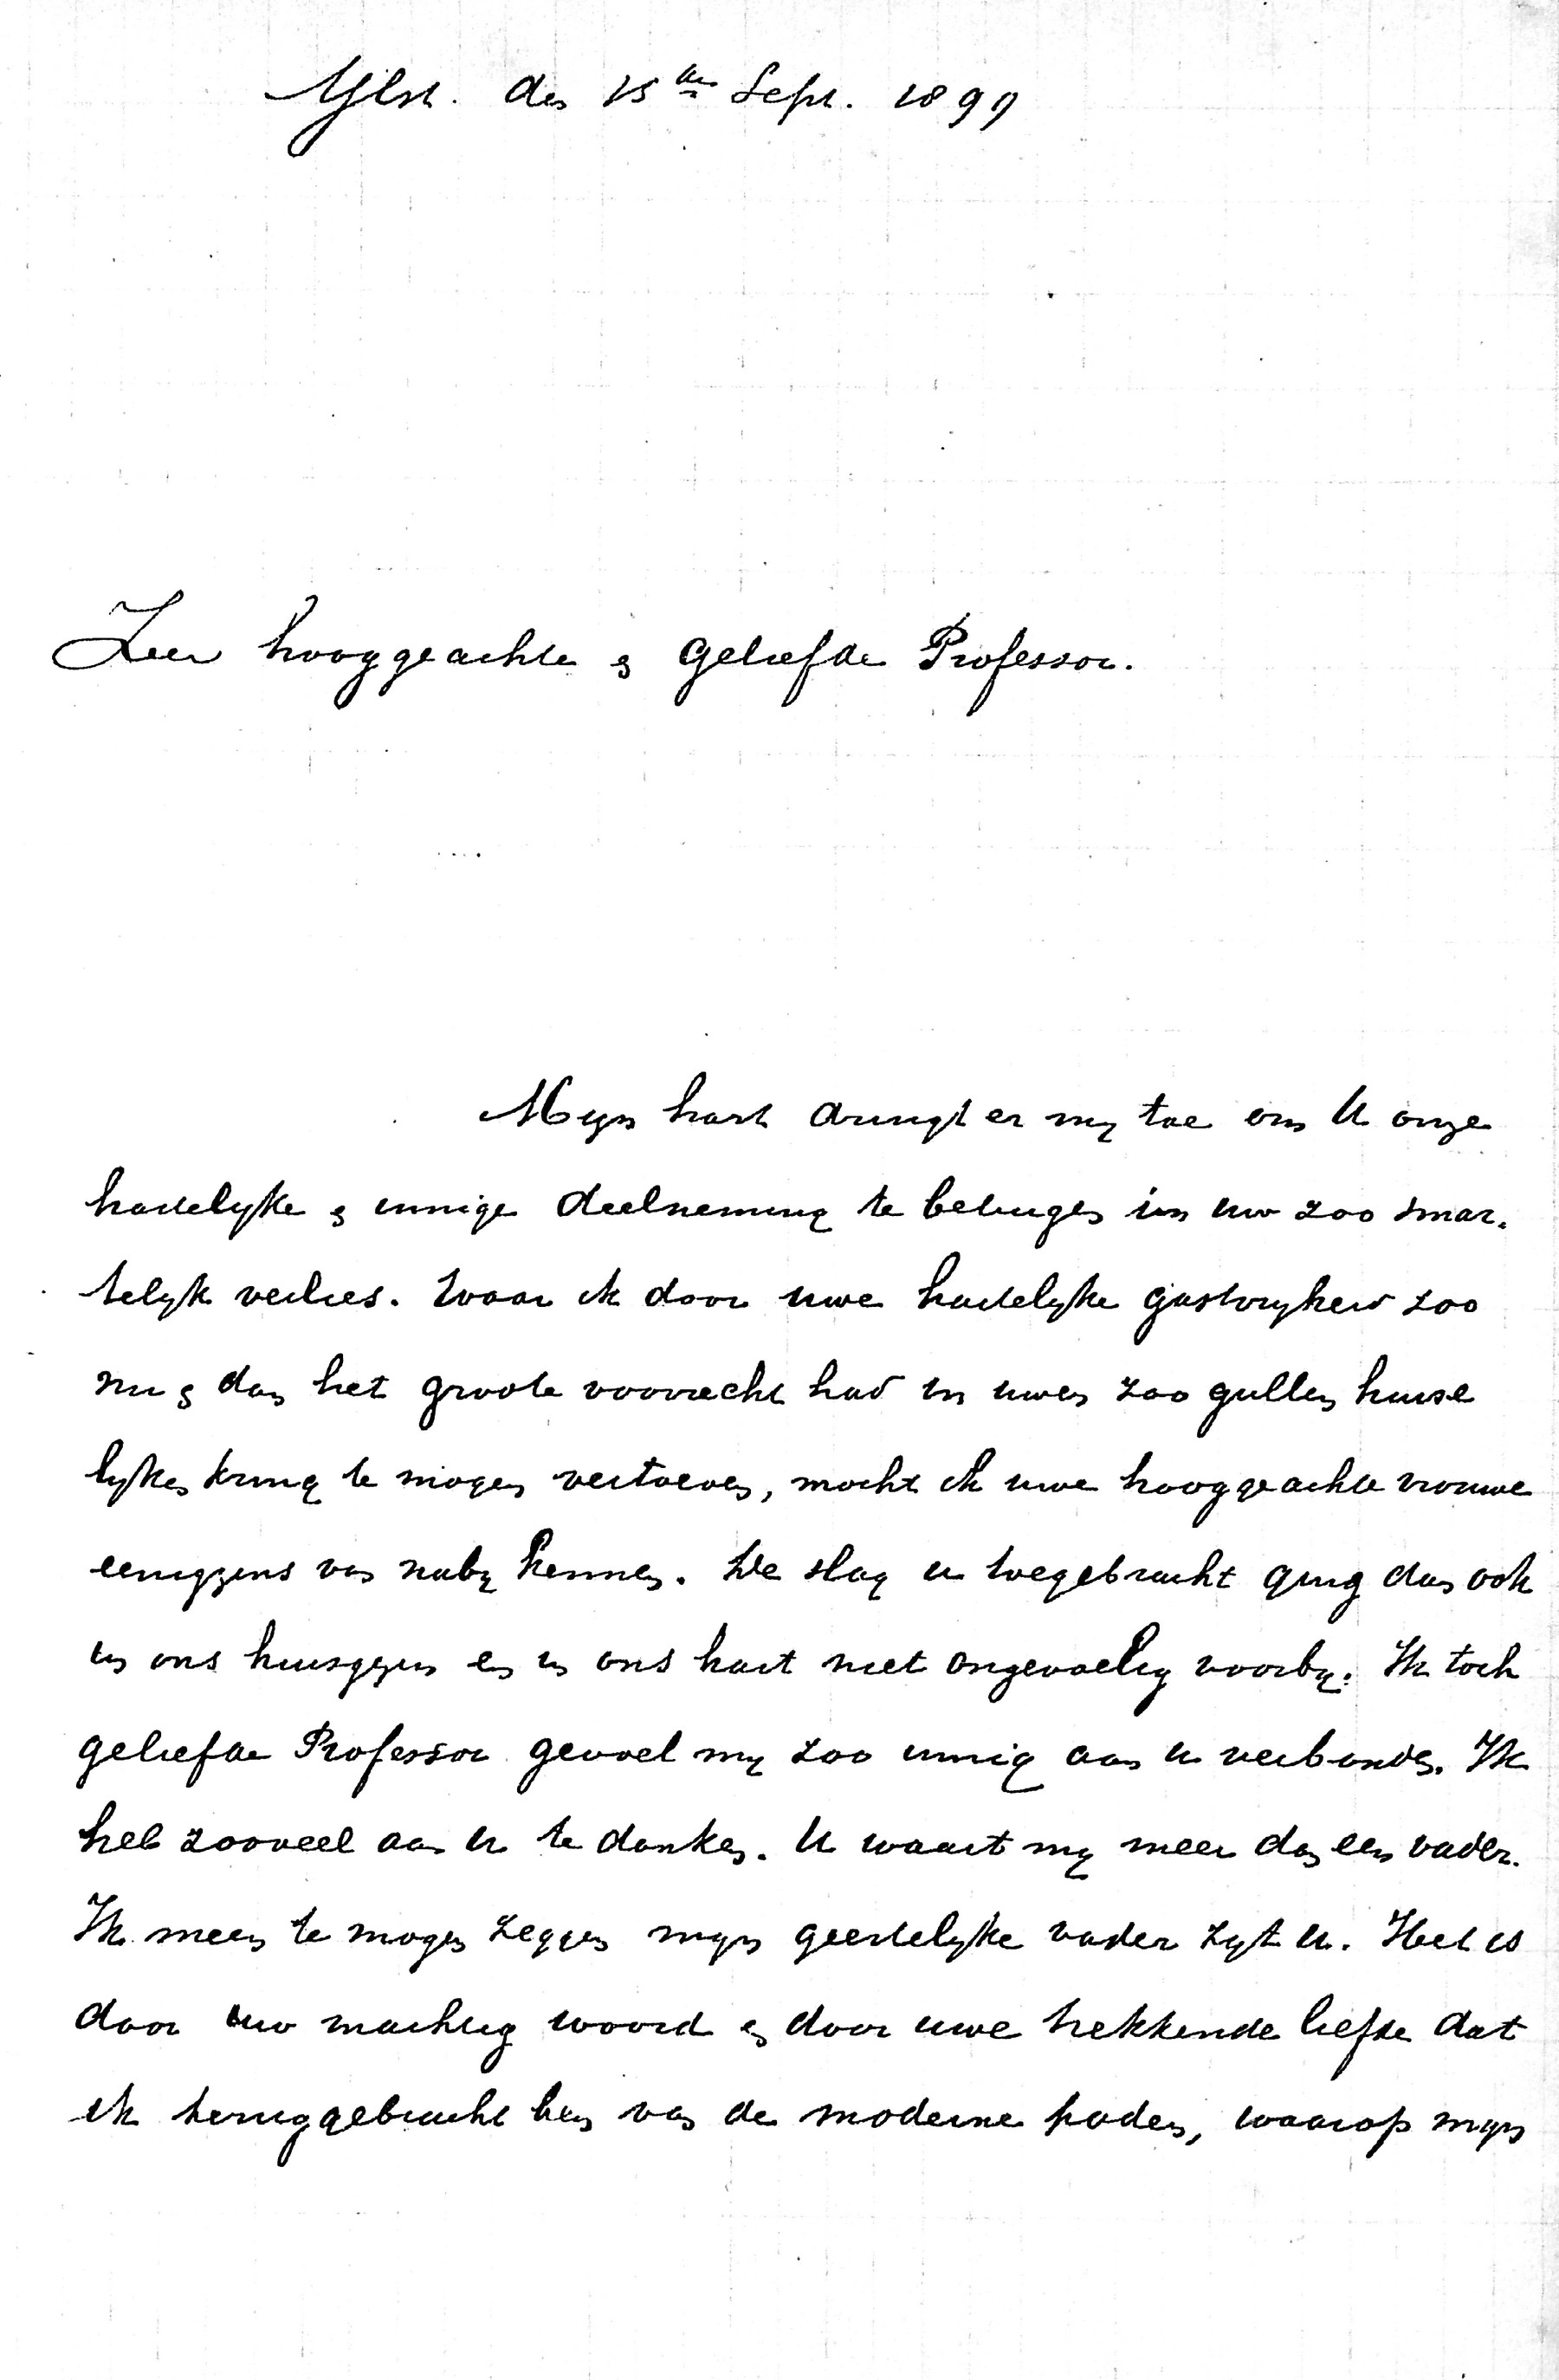 IJlst. den 15den Sept. 1899
Zeer hooggeachte en geliefde Professor.
Mijn hart dringt er mij toe om U onze
hartelijke en innige deelneming te betuigen in uw zoo smar-
telijk verlies. Waar ik door uwe hartelijke gastvrijheid zoo
nu en dan het groote voorrecht had in uwen zoo gullen huise
lijken kring te mogen vertoeven, mocht ik uwe hooggeachte vrouwe
eenigzins van nabij kennen. De slag u toegebracht ging dan ook
in ons huisgezin en in ons hart niet ongevoelig voorbij. Ik toch
geliefde Professor gevoel mij zoo innig aan u verbonden. Ik
heb zooveel aan U te danken. U waart mij meer dan een vader.
Ik meen te mogen zeggen mijn geestelijke vader zijt u. Het is
door uw machtig woord en door uwe trekkende liefde dat
ik teruggebracht ben van de moderne paden, waarop mijn